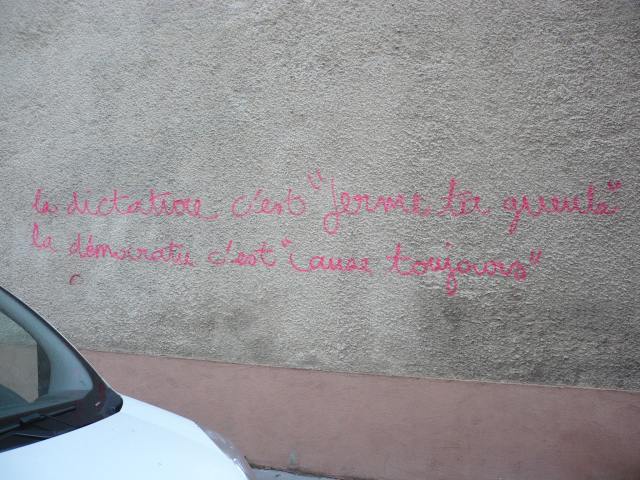 la dictature c'est "ferme ta gueule"
la démocratie c'est "cause toujours"